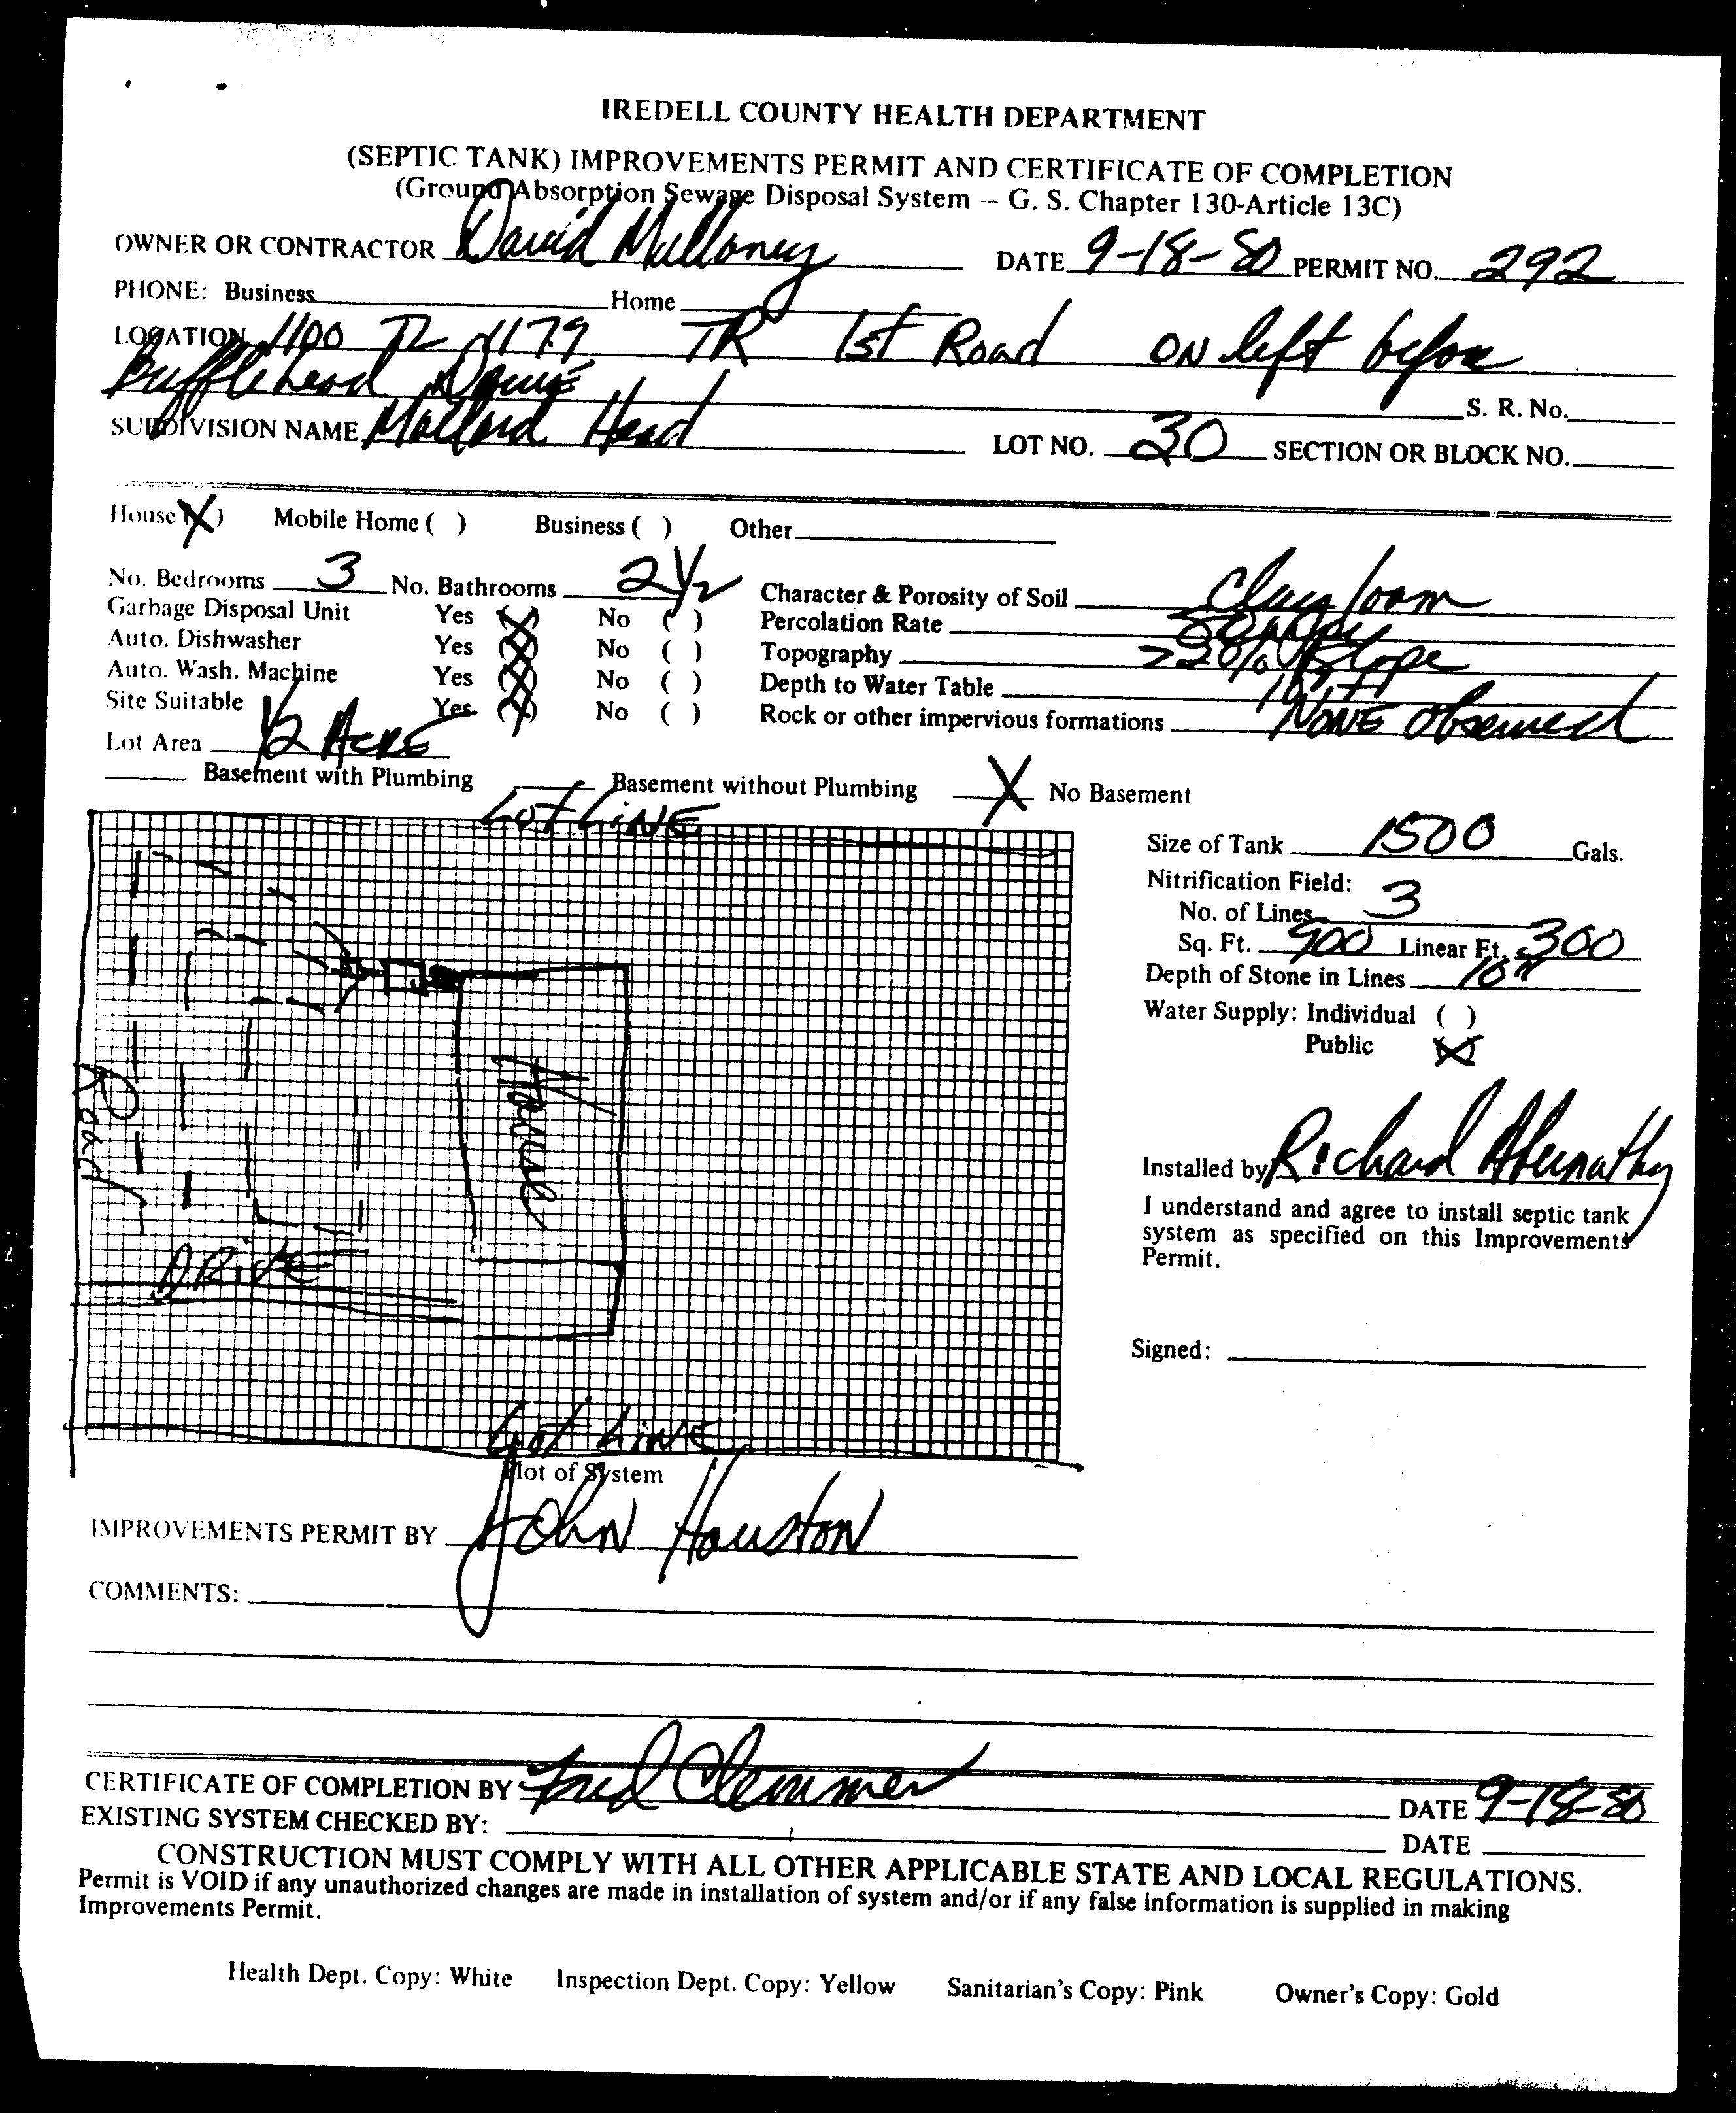 IREDELL COUNTY HEALTH DEPARTMENT
(SEPTIC TANK) IMPROVEMENTS PERMIT AND CERTIFICATE OF COMPLETION
(Ground Absorption Sewage Disposal System -- G. S. Chapter 130-Article 13C)
OWNER OR CONTRACTOR David Mulloney DATE 9-18-80 PERMIT NO. 292
PHONE: Business Home
LOCATION 1100 TL 1179 TR 1st Road ON left before
Bufflehead Drive S. R. No.
SUBDIVISION NAME Mallard Head LOT NO. 30 SECTION OR BLOCK NO.
House (X) Mobile Home ( ) Business ( ) Other
No. Bedrooms 3 No. Bathrooms 2 1/2 Character & Porosity of Soil Clay loam
Garbage Disposal Unit Yes (X) No ( ) Percolation Rate
Auto. Dishwasher Yes (X) No ( ) Topography >20% Slope
Auto. Wash. Machine Yes (X) No ( ) Depth to Water Table
Site Suitable Yes (X) No ( ) Rock or other impervious formations NONE Observed
Lot Area 1/2 ACRE
Basement with Plumbing Basement without Plumbing X No Basement
Lot LiNE
Size of Tank 1500 Gals.
Nitrification Field:
No. of Lines 3
Sq. Ft. 900 Linear Ft. 300
Depth of Stone in Lines 10"
Water Supply: Individual ( )
Public (X)
Road
House
DRiVE
Installed by Richard Abernathy
I understand and agree to install septic tank
system as specified on this Improvements
Permit.
Signed:
Lot LiNE
Plot of System
IMPROVEMENTS PERMIT BY John Houston
COMMENTS:
CERTIFICATE OF COMPLETION BY Fred Clemmer DATE 9-18-80
EXISTING SYSTEM CHECKED BY: DATE
CONSTRUCTION MUST COMPLY WITH ALL OTHER APPLICABLE STATE AND LOCAL REGULATIONS.
Permit is VOID if any unauthorized changes are made in installation of system and/or if any false information is supplied in making
Improvements Permit.
Health Dept. Copy: White Inspection Dept. Copy: Yellow Sanitarian's Copy: Pink Owner's Copy: Gold